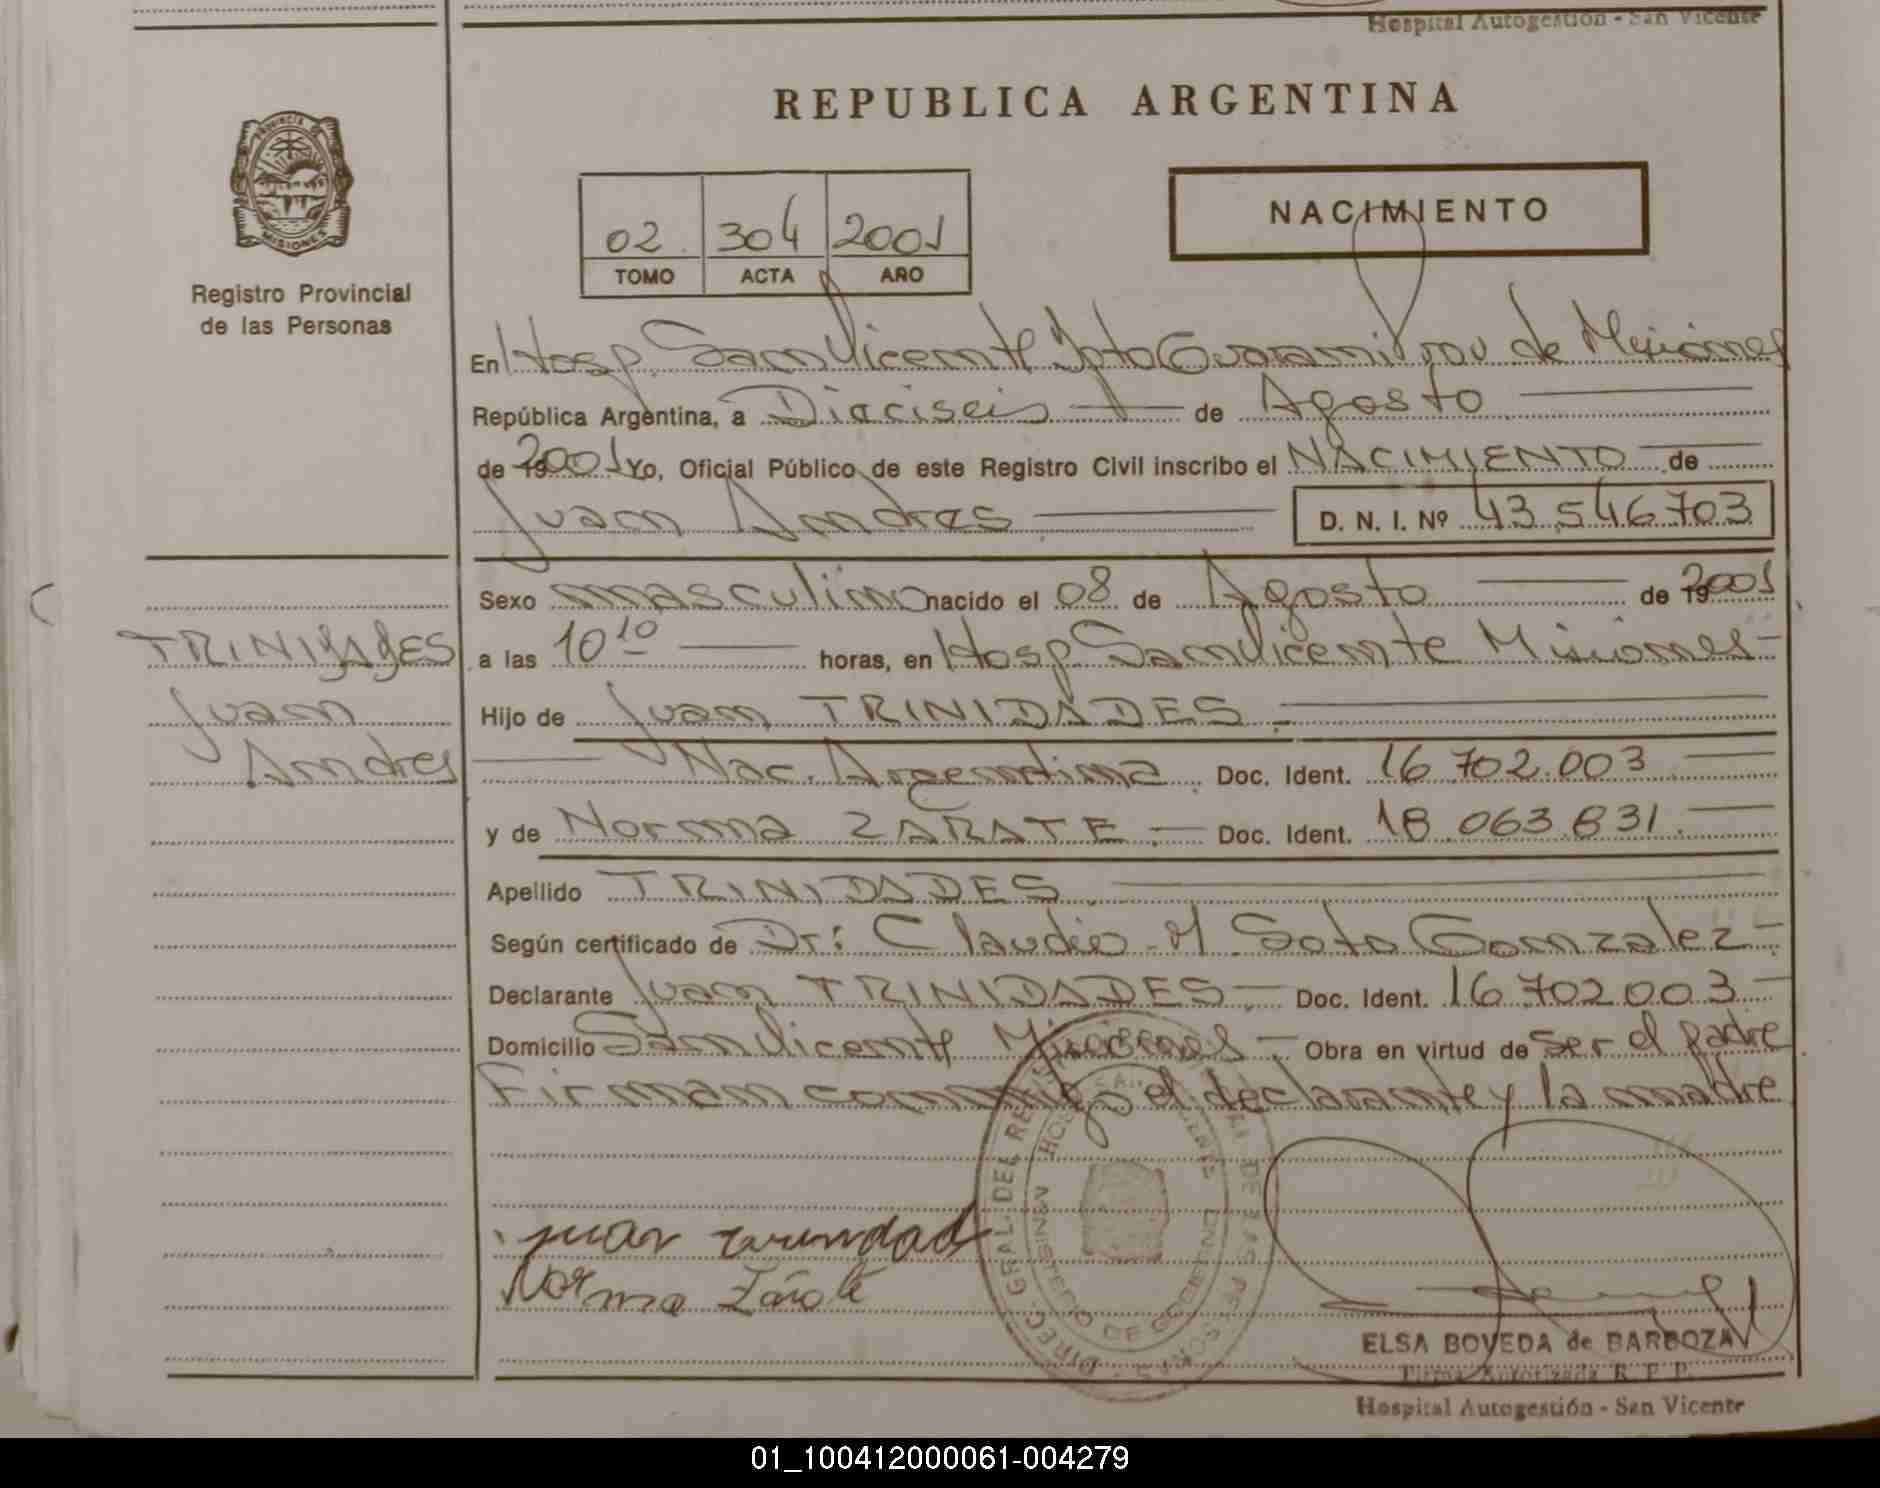 Hospital Autogestión - San Vicente
REPUBLICA ARGENTINA
PROVINCIA DE
MISIONES
Registro Provincial
de las Personas
02 304 2001
TOMO ACTA AÑO
NACIMIENTO
En Hosp San Vicente Dpto Guarani Prov de Misiones
República Argentina, a Dieciseis de Agosto
de 19 2001 Yo, Oficial Público de este Registro Civil inscribo el NACIMIENTO de
Juan Andres D. N. I. Nº 43 546 703
Sexo masculino nacido el 08 de Agosto de 19 2001
TRINIDADES
Juan
Andres
a las 10 10 horas, en Hosp San Vicente Misiones
Hijo de Juan TRINIDADES.
Nac. Argentina Doc. Ident. 16 702.003
y de Norma ZARATE. Doc. Ident. 18.063.831.
Apellido TRINIDADES.
Según certificado de Dr: Claudio M Soto Gonzalez
Declarante Juan TRINIDADES. Doc. Ident. 16 702 003
Domicilio San Vicente Misiones Obra en virtud de ser el padre
Firman conmigo el declarante y la madre
Juan trinidad
Norma Zárate
DIREC. GRAL. DEL REGISTRO DE LAS PERSONAS
MINISTERIO DE GOBIERNO
HOSP. SAN VICENTE
ELSA BOVEDA de BARBOZA
Firma Autorizada R. P. P.
Hospital Autogestión - San Vicente
01_100412000061-004279